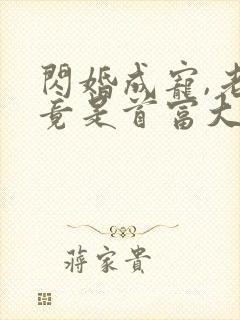 閃婚成寵,老
竟是首富大
蔣家貴